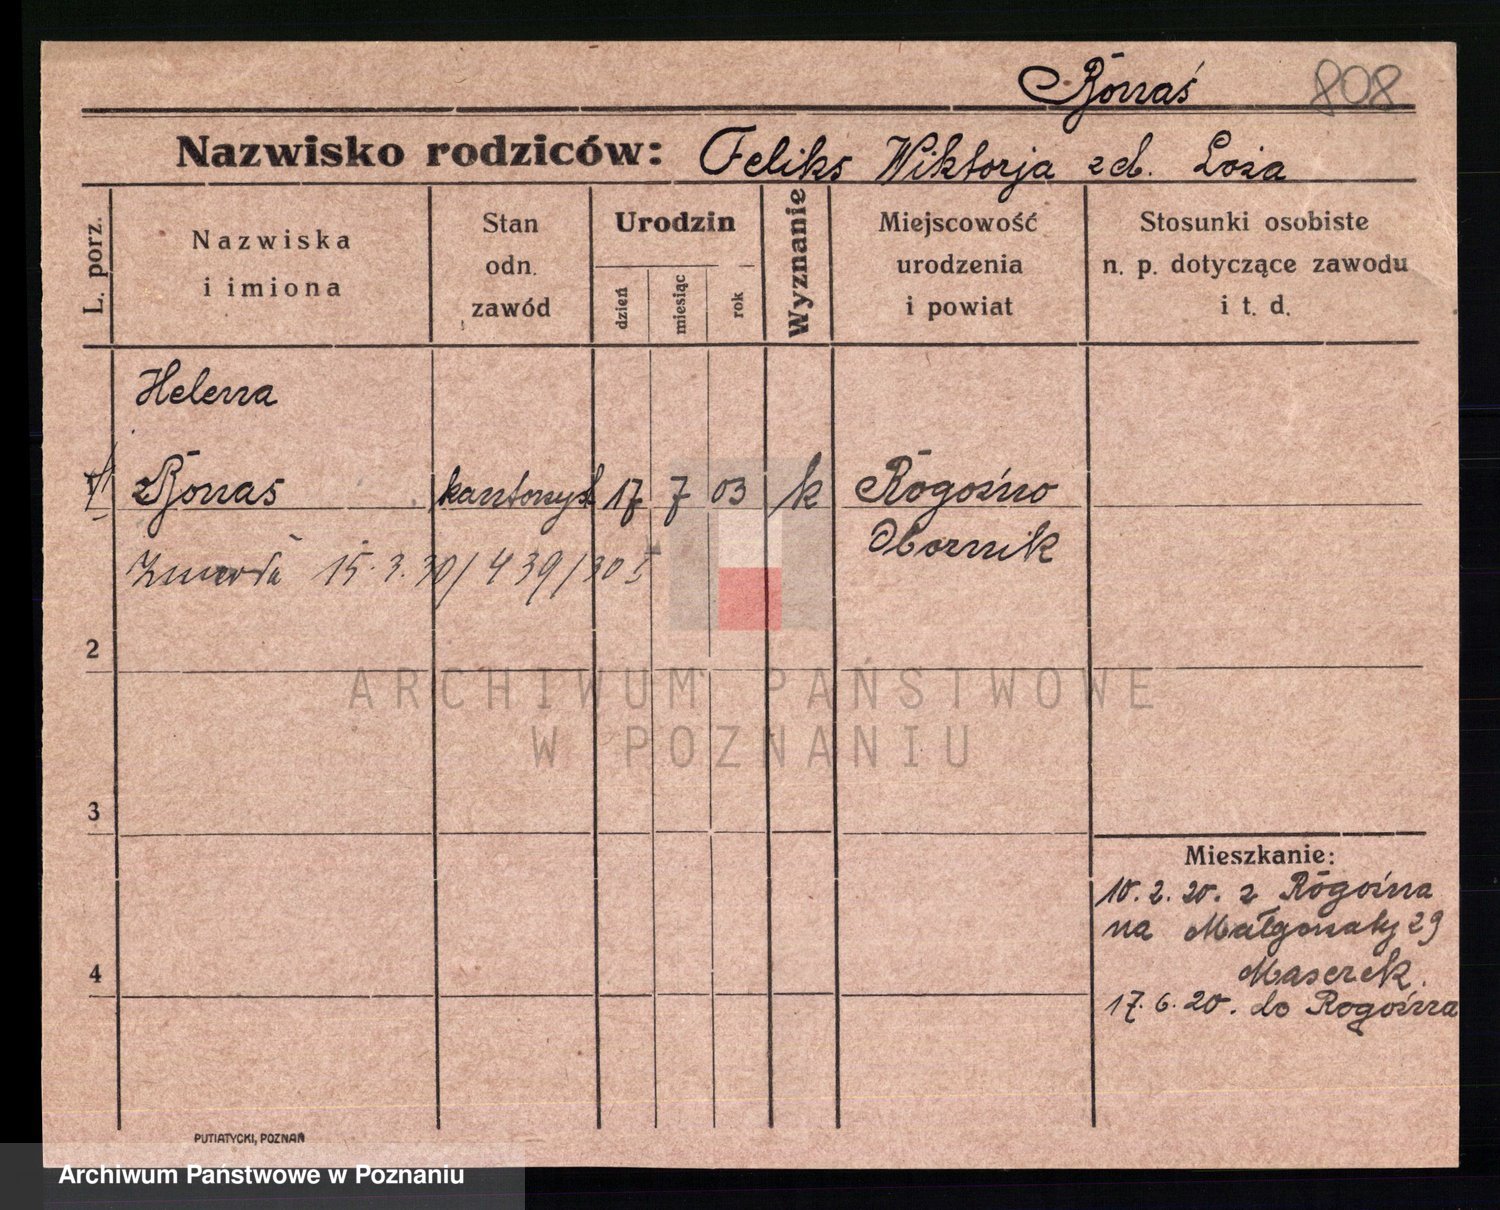 Bonaś 808
Nazwisko rodziców: Feliks Wiktorja zd. Loża
L. porz.
Nazwiska
i imiona
Stan
odn.
zawód
Urodzin
dzień
miesiąc
rok
Wyznanie
Miejscowość
urodzenia
i powiat
Stosunki osobiste
n. p. dotyczące zawodu
i t. d.
Helena
Bonas 17 7 03 k Rogoźno
Obornik
Zmarła 15.3.30/439/30
2
3
4
Mieszkanie:
10.2.20. z Rogoźna
na Małgorzaty 29
17.6.20. do Rogoźna
PUTIATYCKI, POZNAŃ
ARCHIWUM PAŃSTWOWE
W POZNANIU
Archiwum Państwowe w Poznaniu